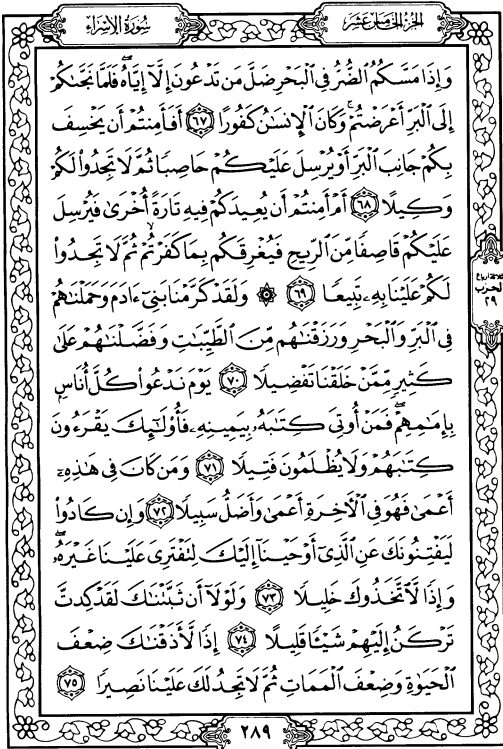 سُورَةُ الإِسْرَاء
الجُزْءُ الخَامِسَ عَشَرَ
وَإِذَا مَسَّكُمُ ٱلضُّرُّ فِى ٱلْبَحْرِ ضَلَّ مَن تَدْعُونَ إِلَّآ إِيَّاهُۖ فَلَمَّا نَجَّىٰكُمْ
إِلَى ٱلْبَرِّ أَعْرَضْتُمْۚ وَكَانَ ٱلْإِنسَٰنُ كَفُورًا ٦٧ أَفَأَمِنتُمْ أَن يَخْسِفَ
بِكُمْ جَانِبَ ٱلْبَرِّ أَوْ يُرْسِلَ عَلَيْكُمْ حَاصِبًا ثُمَّ لَا تَجِدُوا۟ لَكُمْ
وَكِيلًا ٦٨ أَمْ أَمِنتُمْ أَن يُعِيدَكُمْ فِيهِ تَارَةً أُخْرَىٰ فَيُرْسِلَ
عَلَيْكُمْ قَاصِفًا مِّنَ ٱلرِّيحِ فَيُغْرِقَكُم بِمَا كَفَرْتُمْۙ ثُمَّ لَا تَجِدُوا۟
لَكُمْ عَلَيْنَا بِهِۦ تَبِيعًا ٦٩ ۞ وَلَقَدْ كَرَّمْنَا بَنِىٓ ءَادَمَ وَحَمَلْنَٰهُمْ
فِى ٱلْبَرِّ وَٱلْبَحْرِ وَرَزَقْنَٰهُم مِّنَ ٱلطَّيِّبَٰتِ وَفَضَّلْنَٰهُمْ عَلَىٰ
كَثِيرٍ مِّمَّنْ خَلَقْنَا تَفْضِيلًا ٧٠ يَوْمَ نَدْعُوا۟ كُلَّ أُنَاسٍۭ
بِإِمَٰمِهِمْۖ فَمَنْ أُوتِىَ كِتَٰبَهُۥ بِيَمِينِهِۦ فَأُو۟لَٰٓئِكَ يَقْرَءُونَ
كِتَٰبَهُمْ وَلَا يُظْلَمُونَ فَتِيلًا ٧١ وَمَن كَانَ فِى هَٰذِهِۦٓ
أَعْمَىٰ فَهُوَ فِى ٱلْءَاخِرَةِ أَعْمَىٰ وَأَضَلُّ سَبِيلًا ٧٢ وَإِن كَادُوا۟
لَيَفْتِنُونَكَ عَنِ ٱلَّذِىٓ أَوْحَيْنَآ إِلَيْكَ لِتَفْتَرِىَ عَلَيْنَا غَيْرَهُۥۖ
وَإِذًا لَّٱتَّخَذُوكَ خَلِيلًا ٧٣ وَلَوْلَآ أَن ثَبَّتْنَٰكَ لَقَدْ كِدتَّ
تَرْكَنُ إِلَيْهِمْ شَيْـًٔا قَلِيلًا ٧٤ إِذًا لَّأَذَقْنَٰكَ ضِعْفَ
ٱلْحَيَوٰةِ وَضِعْفَ ٱلْمَمَاتِ ثُمَّ لَا تَجِدُ لَكَ عَلَيْنَا نَصِيرًا ٧٥
ثلاثة أرباع
الحزب
٢٩
٢٨٩